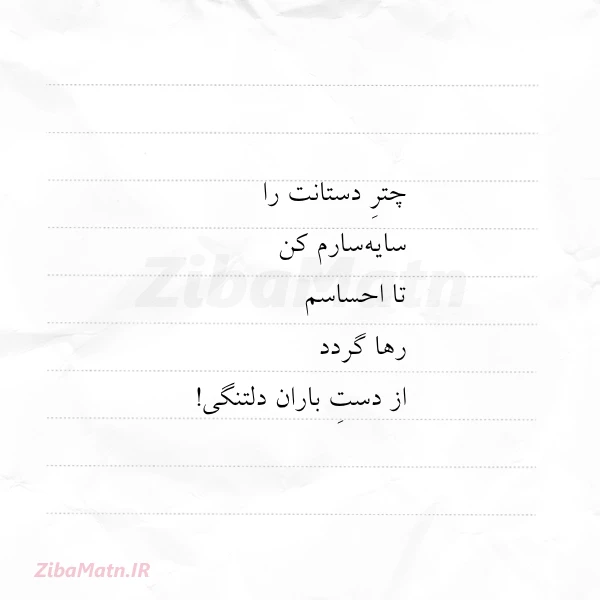 چترِ دستانت را
سایه‌سارم کن
ZibaMatn
تا احساسم
رها گردد
از دستِ باران دلتنگی!
ZibaMatn.IR